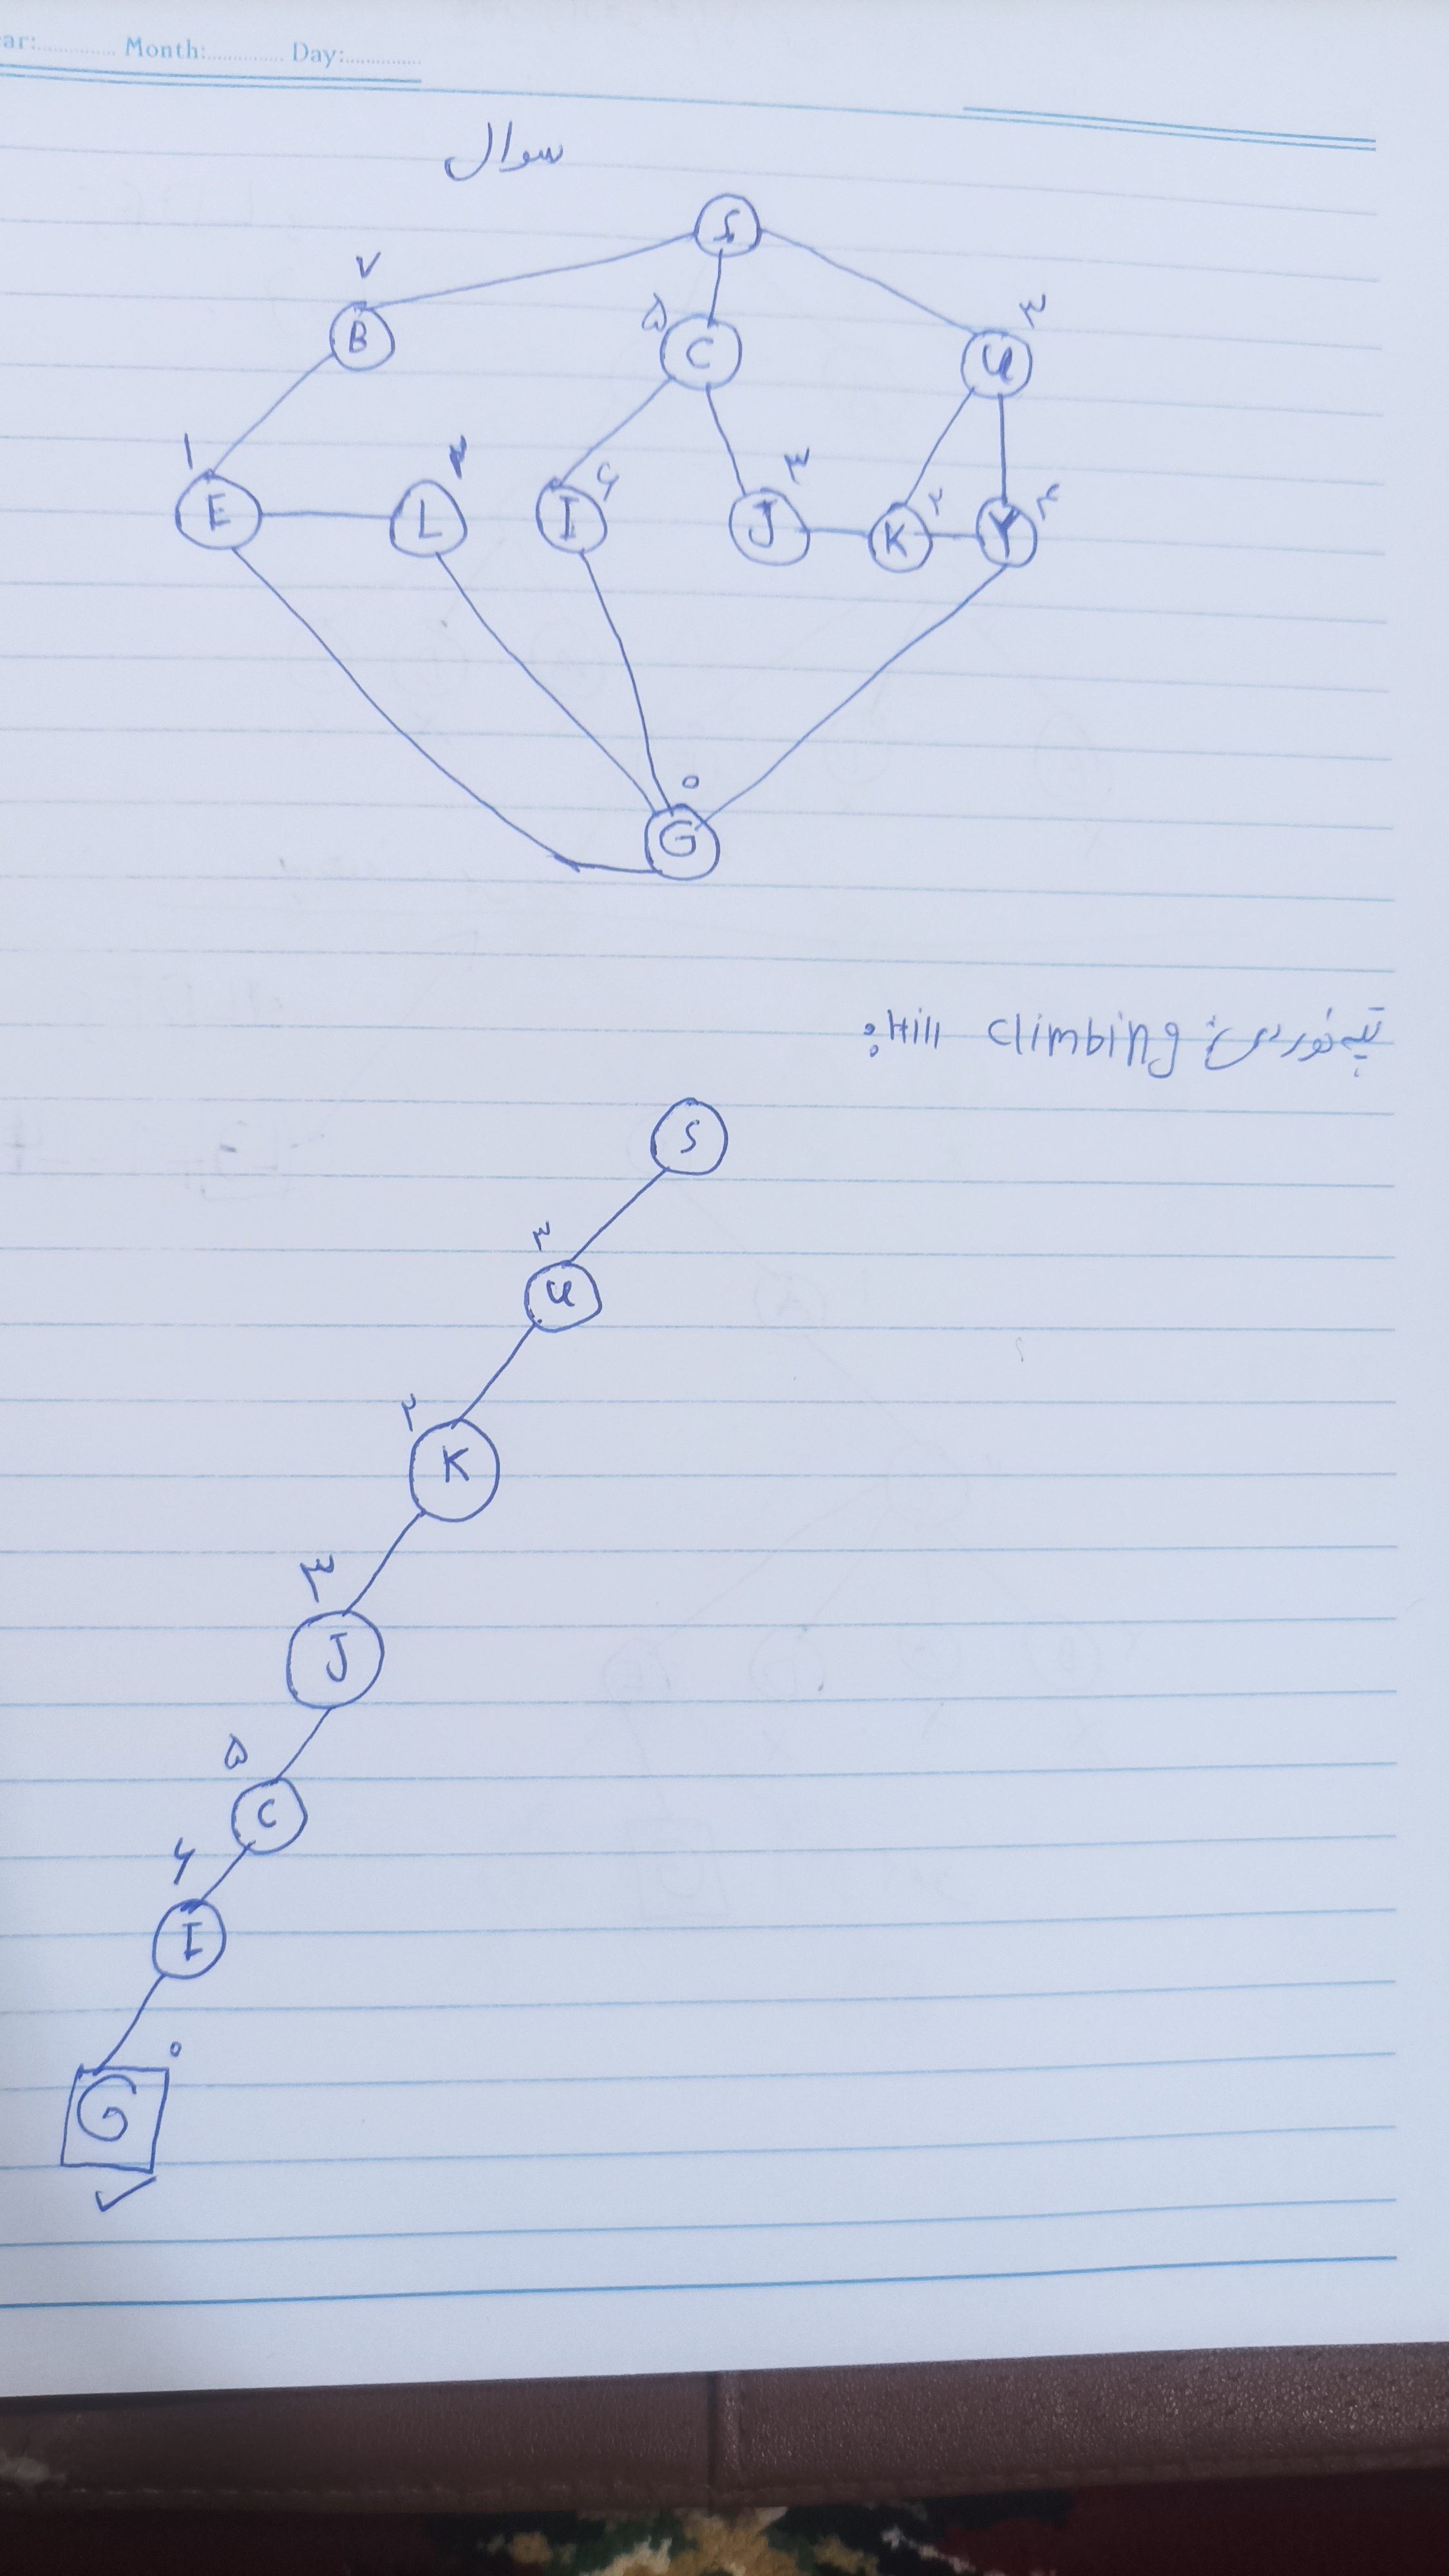 ar:............ Month:............ Day:............
سوال
S
۷ ۵ ۳
B C U
۱ ۶ ۳ ۲ ۴
E L I J K Y
۰
G
تپه نوردی Hill Climbing:
S
۳
U
۲
K
۳
J
۵
C
۶
I
۰
G